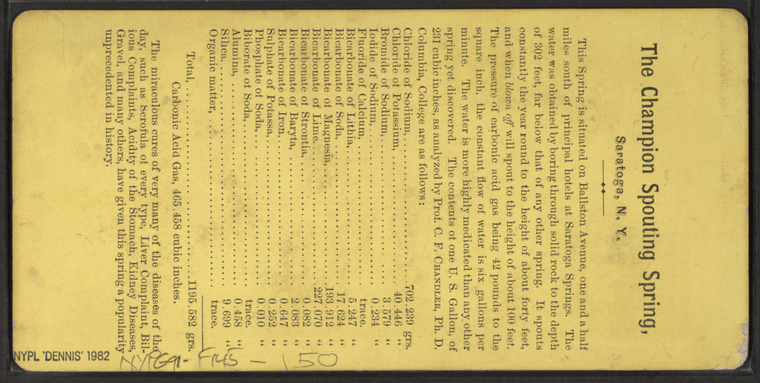 The Champion Spouting Spring,
Saratoga, N. Y.
This Spring is situated on Ballston Avenue, one and a half
miles south of principal hotels at Saratoga Springs. The
water was obtained by boring through solid rock to the depth
of 302 feet, far below that of any other spring. It spouts
constantly the year round to the height of about forty feet,
and when blown off will spout to the height of about 100 feet.
The pressure of carbonic acid gas being 42 pounds to the
square inch, the constant flow of water is six gallons per
minute. The water is more highly medicated than any other
spring yet discovered. The contents of one U. S. Gallon, of
231 cubic inches, as analyzed by Prof. C. F. CHANDLER, Ph. D.
Columbia, College are as follows:
Chloride of Sodium, 702.239 grs.
Chloride of Potassium, 40.446 "
Bromide of Sodium, 3.579 "
Iodide of Sodium, 0.234 "
Fluoride of Calcium, trace.
Bicarbonate of Lithia, 5.247 "
Bicarbonate of Soda, 17.624 "
Bicarbonate of Magnesia, 193.912 "
Bicarbonate of Lime, 227.070 "
Bicarbonate of Strontia, 0.082 "
Bicarbonate of Baryta, 2.083 "
Bicarbonate of Iron, 0.647 "
Sulphate of Potassa, 0.252 "
Phosphate of Soda, 0.010 "
Biborate of Soda, trace.
Alumina, 0.458 "
Silica, 9.699 "
Organic matter, trace.
Total, 1195.582 grs.
Carbonic Acid Gas, 465.458 cubic inches.
The miraculous cures of very many of the diseases of the
day, such as Scrofula of every type, Liver Complaint, Bil-
ious Complaints, Acidity of the Stomach, Kidney Diseases,
Gravel, and many others, have given this spring a popularity
unprecedented in history.
NYPL 'DENNIS' 1982